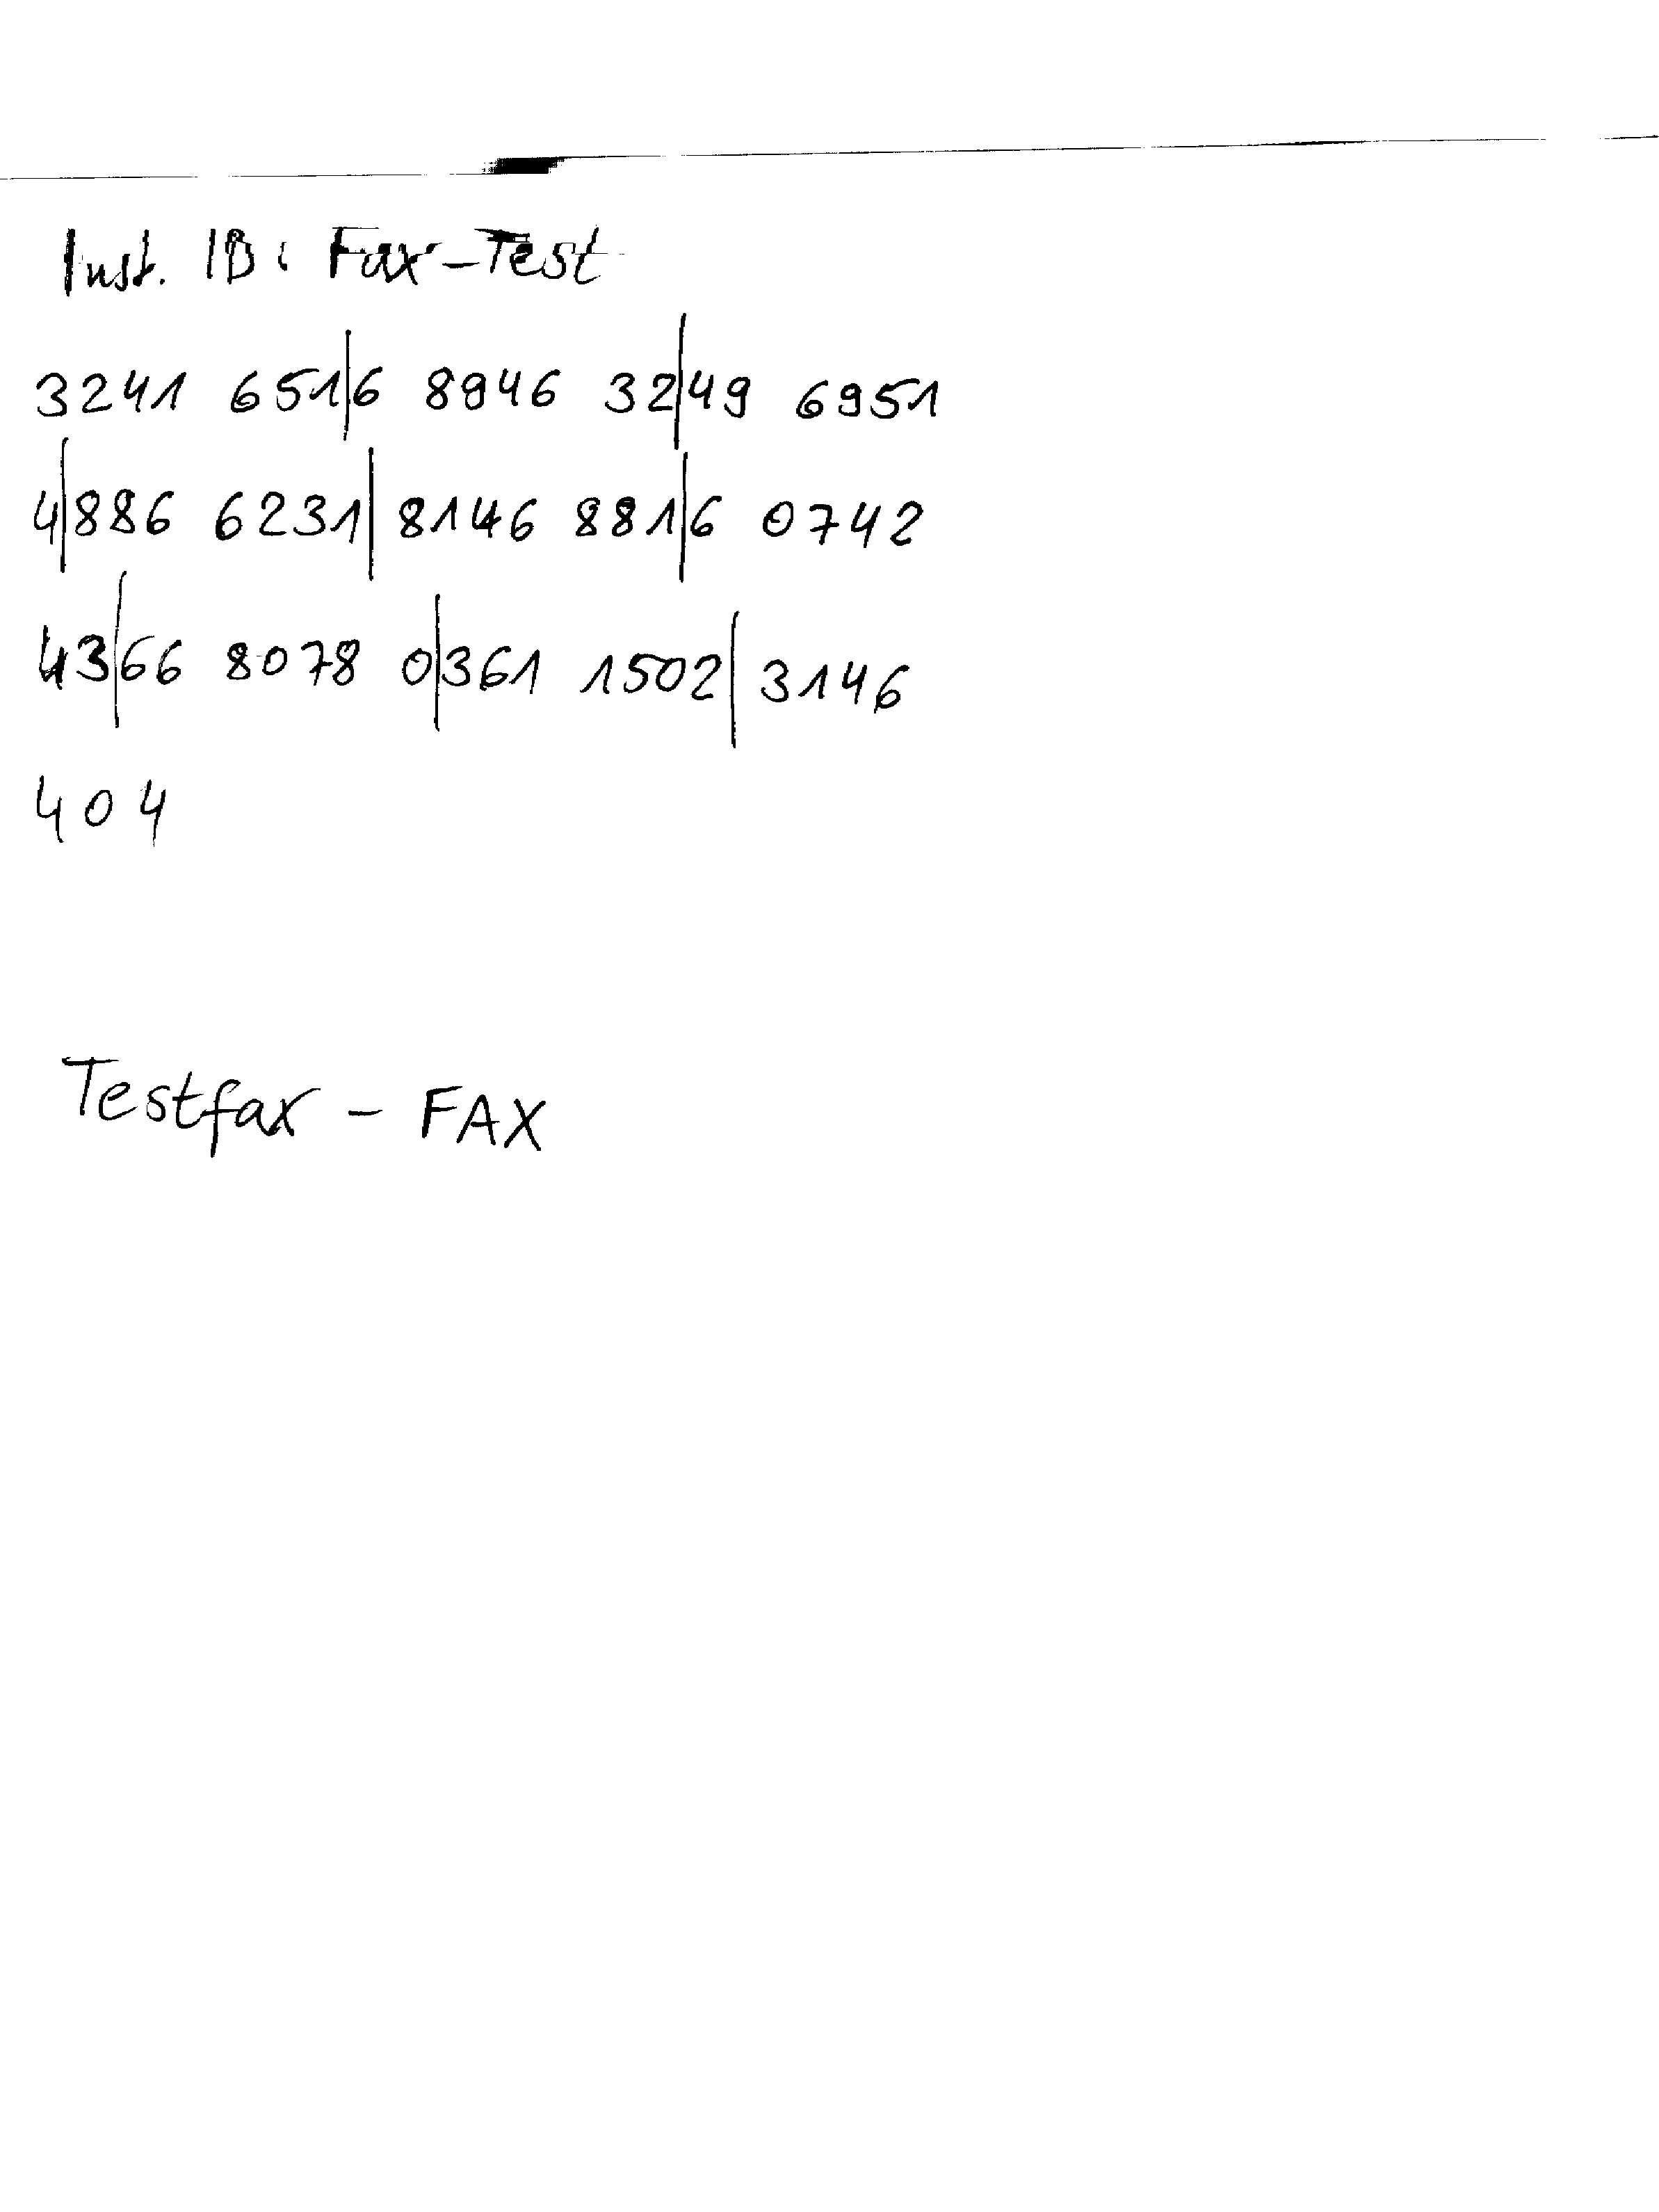 Inst. IB: Fax-Test
3241 651|6 8946 32|49 6951
4|886 6231| 8146 881|6 0742
43|66 8078 0|361 1502| 3146
404
Testfax - FAX